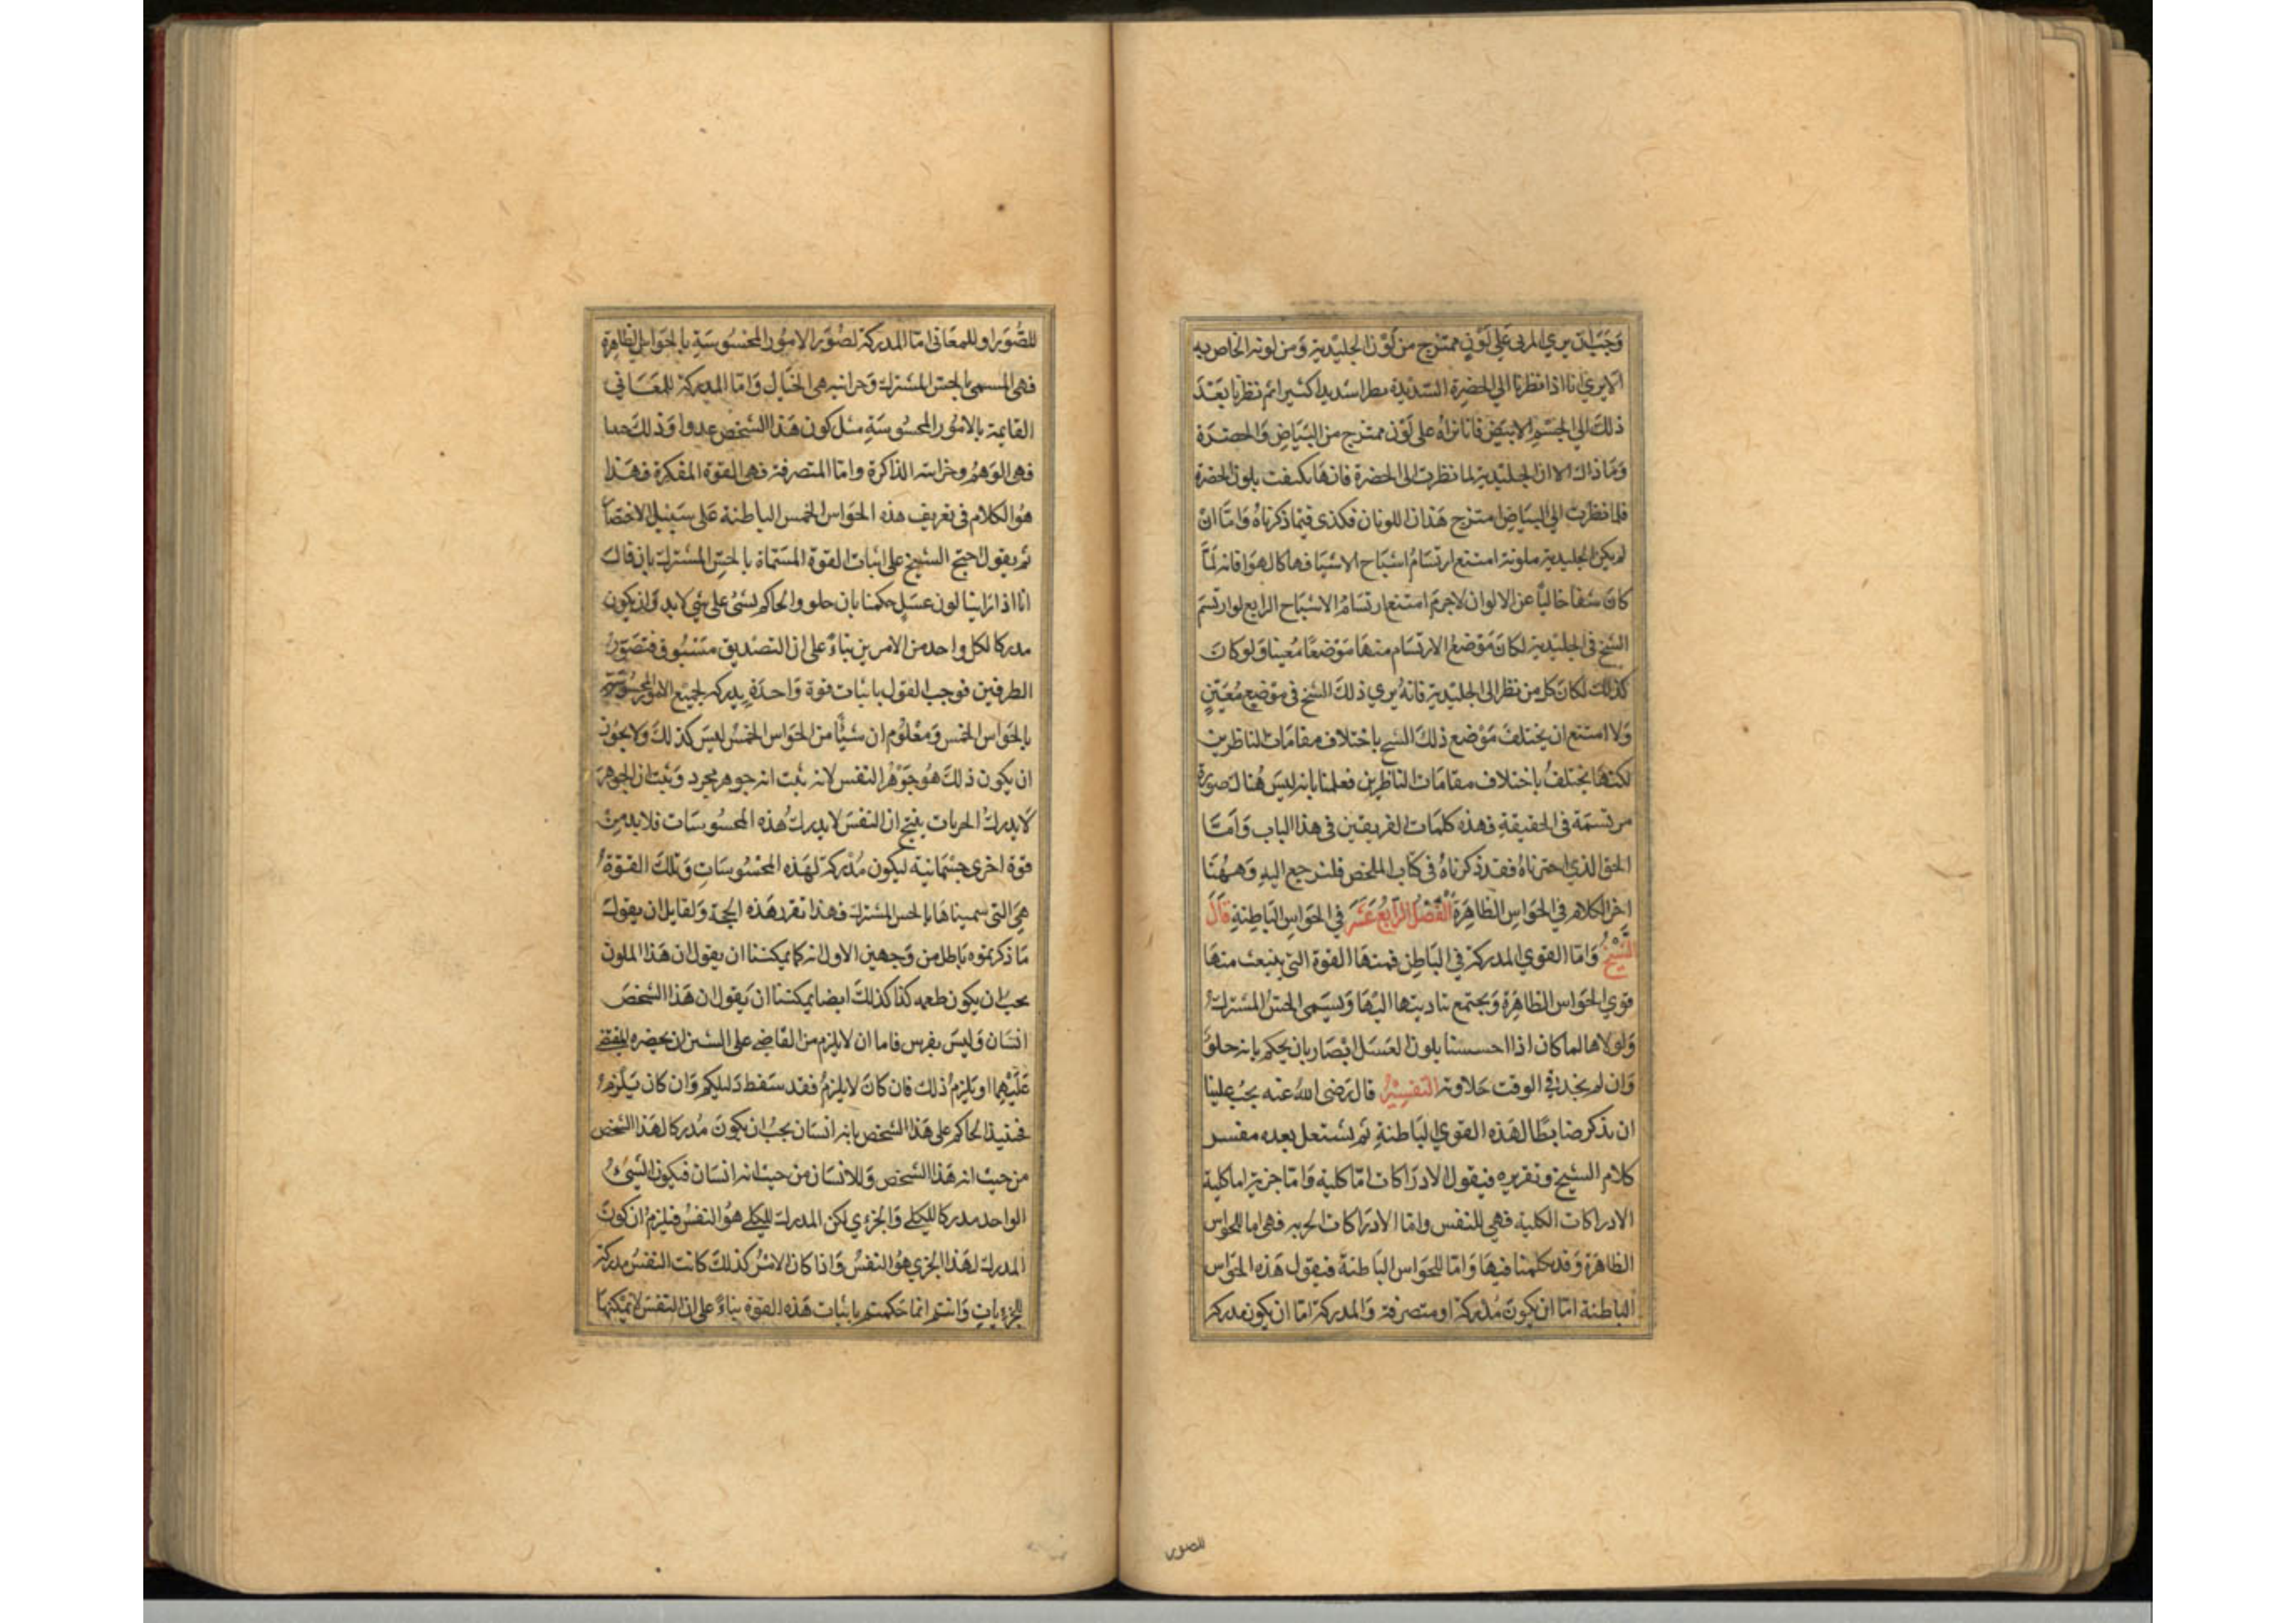 وَجَبَ ان يري المرئى عَلى لَوْنٍ ممتزج من لَوْن الجليدية وَمن لونه الخاص به
الا يرى انا اذا نظرنا الي الخضرة الشديدة نظرا شديدا كثيرا ثم نظرنا بَعْدَ
ذلكَ الي الجسْم الابيَض فانا نراهُ على لَوْن ممتزج من البيَاضِ وَالخضرَة
وَمَا ذاك الا ان الجليدية لما نظرت الى الخضرة فانهَا تكيفت بلون الخضرة
فلما نظرَت الي البيَاضِ امتزج هَذان اللونان فكذى فيمَا ذكرناهُ وَامَّا انْ
لم يكن الجليدية ملونة امتنع ارتسَامُ اشبَاح الاشيَا فيها كالهوَا فانه لمَّا
كانَ شفا خالياً عن الالوان لاجرمَ امتنع ارتسَامُ الاشبَاح الرابع لو ارتسمَ
الشبح فى الجليدية لكانَ مَوْضعُ الارتسَام منهَا مَوْضعًا مُعينا وَلو كانَ
كذلكَ لكَانَ كل من نظر الى الجليدية فانهُ يري ذلكَ الشبح فى موْضع مُعَيّنٍ
وَلا امتنع ان يختلفَ مَوْضع ذلكَ الشبح باختلاف مقامَات الناظرين
لكنهَا يختلفُ باختلاف مقامَات الناظرين فعلمنا بانه ليسَ هُناكَ صورة
مرتسمَة فى الحقيقةِ فهذه كلمَات الفريقين فى هذا الباب وَامَّا
الحق الذي اخترناهُ فقد ذكرناهُ فى كتاب الملخص فلنرجع اليهِ وَهٰهُنَا
اخر الكلام في الحَوَاسِ الظاهِرَة الفَصْلُ الرَّابعُ عَشَرَ في الحَوَاسِ البَاطِنَةِ قَالَ
الشَّيْخُ وَامَّا القوي المدركة في البَاطِن فمنهَا القوة التى ينبعث منهَا
قوي الحَوَاس الظاهِرَة وَيجتمع بتاديتها اليْهَا وَيسَمى الحسّ المشترك
وَلولاها لما كان اذا احسسنا بلون العَسَل ابْصَار بان يحكم بانه حلوٌ
وَان لم يجد في الوقت حَلاوته التفسِيْرُ قال رَضى اللهُ عنه يجبُ علينا
ان نذكر ضابطًا لهَذه القوي البَاطنةِ ثم نشتغل بعده مفسر
كلام الشيخ وتقريره فيقول الادرَاكات امَّا كلية وَامَّا جزئية اما كلية
الادراكات الكلية فهي للنفس وامَّا الادرَاكات الجزئيه فهى اما للحواس
الظاهرَة وَقد تكلمنا فيهَا وَامَّا للحوَاس البَاطنةَ فيقول هَذه الحوَاس
الباطنة امَّا ان يكونَ مُدْركة او متصرفة وَالمدركة امَّا ان يكون مدركة
للصور
للصُّوَر او للمعَانى امَّا المدركة لصُوَر الامُور المحسُوسَةِ بالحَوَاس الظاهِرَة
فهى المسمى بالحسّ المشترك وَخزانته هى الخيَال وَامَّا المدركة للمَعَاني
القايمة بالامُور المحسُوسَةِ مثل كون هَذا الشخص عدوا وَذلكَ حبيبا
فهى الوَهمُ وخزانته الذاكرة وامَّا المتصرفة فهى القوة المفكرة فهَذا
هُوَ الكلام فى تعريف هذه الحَوَاس الخمس الباطنة عَلى سَبيْل الاختصَار
ثم يقول احتج الشيخ على اثبات القوة المسَمَاة بالحسِّ المشترك بان قالَ
انا اذا رَاينا لون عسَلٍ حكمنا بان حلو والحاكم بشئ على شئ لابد وَان يكون
مدركا لكل واحد من الامرين بناءً على ان التصديق مَسْبُوق بتصَوّر
الطرفين فوجب القول باثبات قوة وَاحدَةٍ يدركه لجميع الامُور المحسُوسَةِ
بالحَوَاس الخمْس وَمعْلوُم ان شيأً من الحَوَاس الخمْس ليسَ كذلكَ وَلا يجوز
ان يكون ذلكَ هُوَ جَوْهَرُ النفس لانه ثبت انه جوهر مجرد وَثبت ان الجوهرَ
لا يدركُ الجزيات ينتج ان النفسَ لا يدركُ هذه المحْسُوسَات فلابد مِنْ
قوة اخرى جسْمَانية ليكون مُدْركة لهَذه المحْسُوسَاتِ وَتلكَ القوّة
هيَ التى سميناهَا بالحس المشترك فهذا تقرر هَذه الحجة وَلقايل ان يقول
مَا ذكرتموه باطل من وَجهين الاول انه كما يمكننا ان يقول ان هَذا الملون
يجبُ ان يكون طعمه كذا كذلكَ ايضا يمكننا ان يَقول ان هَذا الشخصَ
انسَان وَليسَ بفرس فاما ان لا يلزم من القاضى على الشيئين ان يحضره المقضى
عَليْهمَا او يَلزمُ ذلك فان كانَ لا يلزمُ فقد سَقط دَليلكم وَان كان يَلزم
فحينئذ الحاكم على هَذا الشخص بانه انسَان يجبُ ان يكونَ مُدركا لهَذا الشخص
من حيث انه هَذا الشخص وَللانسَان من حيث انه انسَان فيكون الشئُ
الواحد مدركا للكلى وَالجزءي لكن المدرك للكلي هوُ النفسُ فيلزمُ ان يكونَ
المدرك لهَذا الجزي هوُ النفسُ وَاذا كان الامْرُ كذلكَ كانت النفسُ مدركة
للجزءياتِ وَانتم انما حَكمتم باثبات هَذه القوة بناءً على ان النفسَ لا يمكنهَا